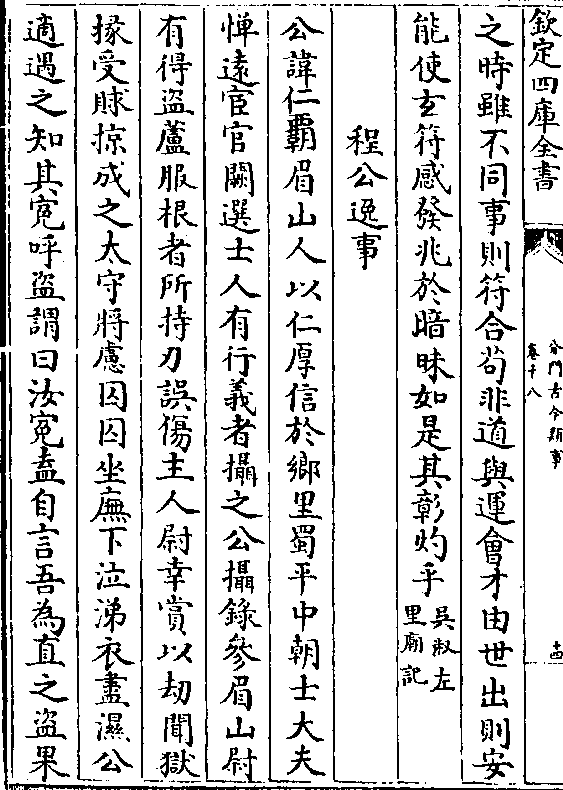 欽定四庫全書
分門古今類事
卷十八
十四
之時雖不同事則符合苟非道與運會才由世出則安
能使玄符感發兆於暗昧如是其彰灼乎吳淑左里廟記
程公逸事
公諱仁霸眉山人以仁厚信於鄉里蜀平中朝士大夫
憚遠宦官闕選士人有行義者攝之公攝錄參眉山尉
有得盜蘆菔根者所持刀誤傷主人尉幸賞以劫聞獄
掾受賕掠成之太守將慮囚囚坐廡下泣涕衣盡濕公
適遇之知其寃呼盜謂曰汝寃盍自言吾為直之盜果